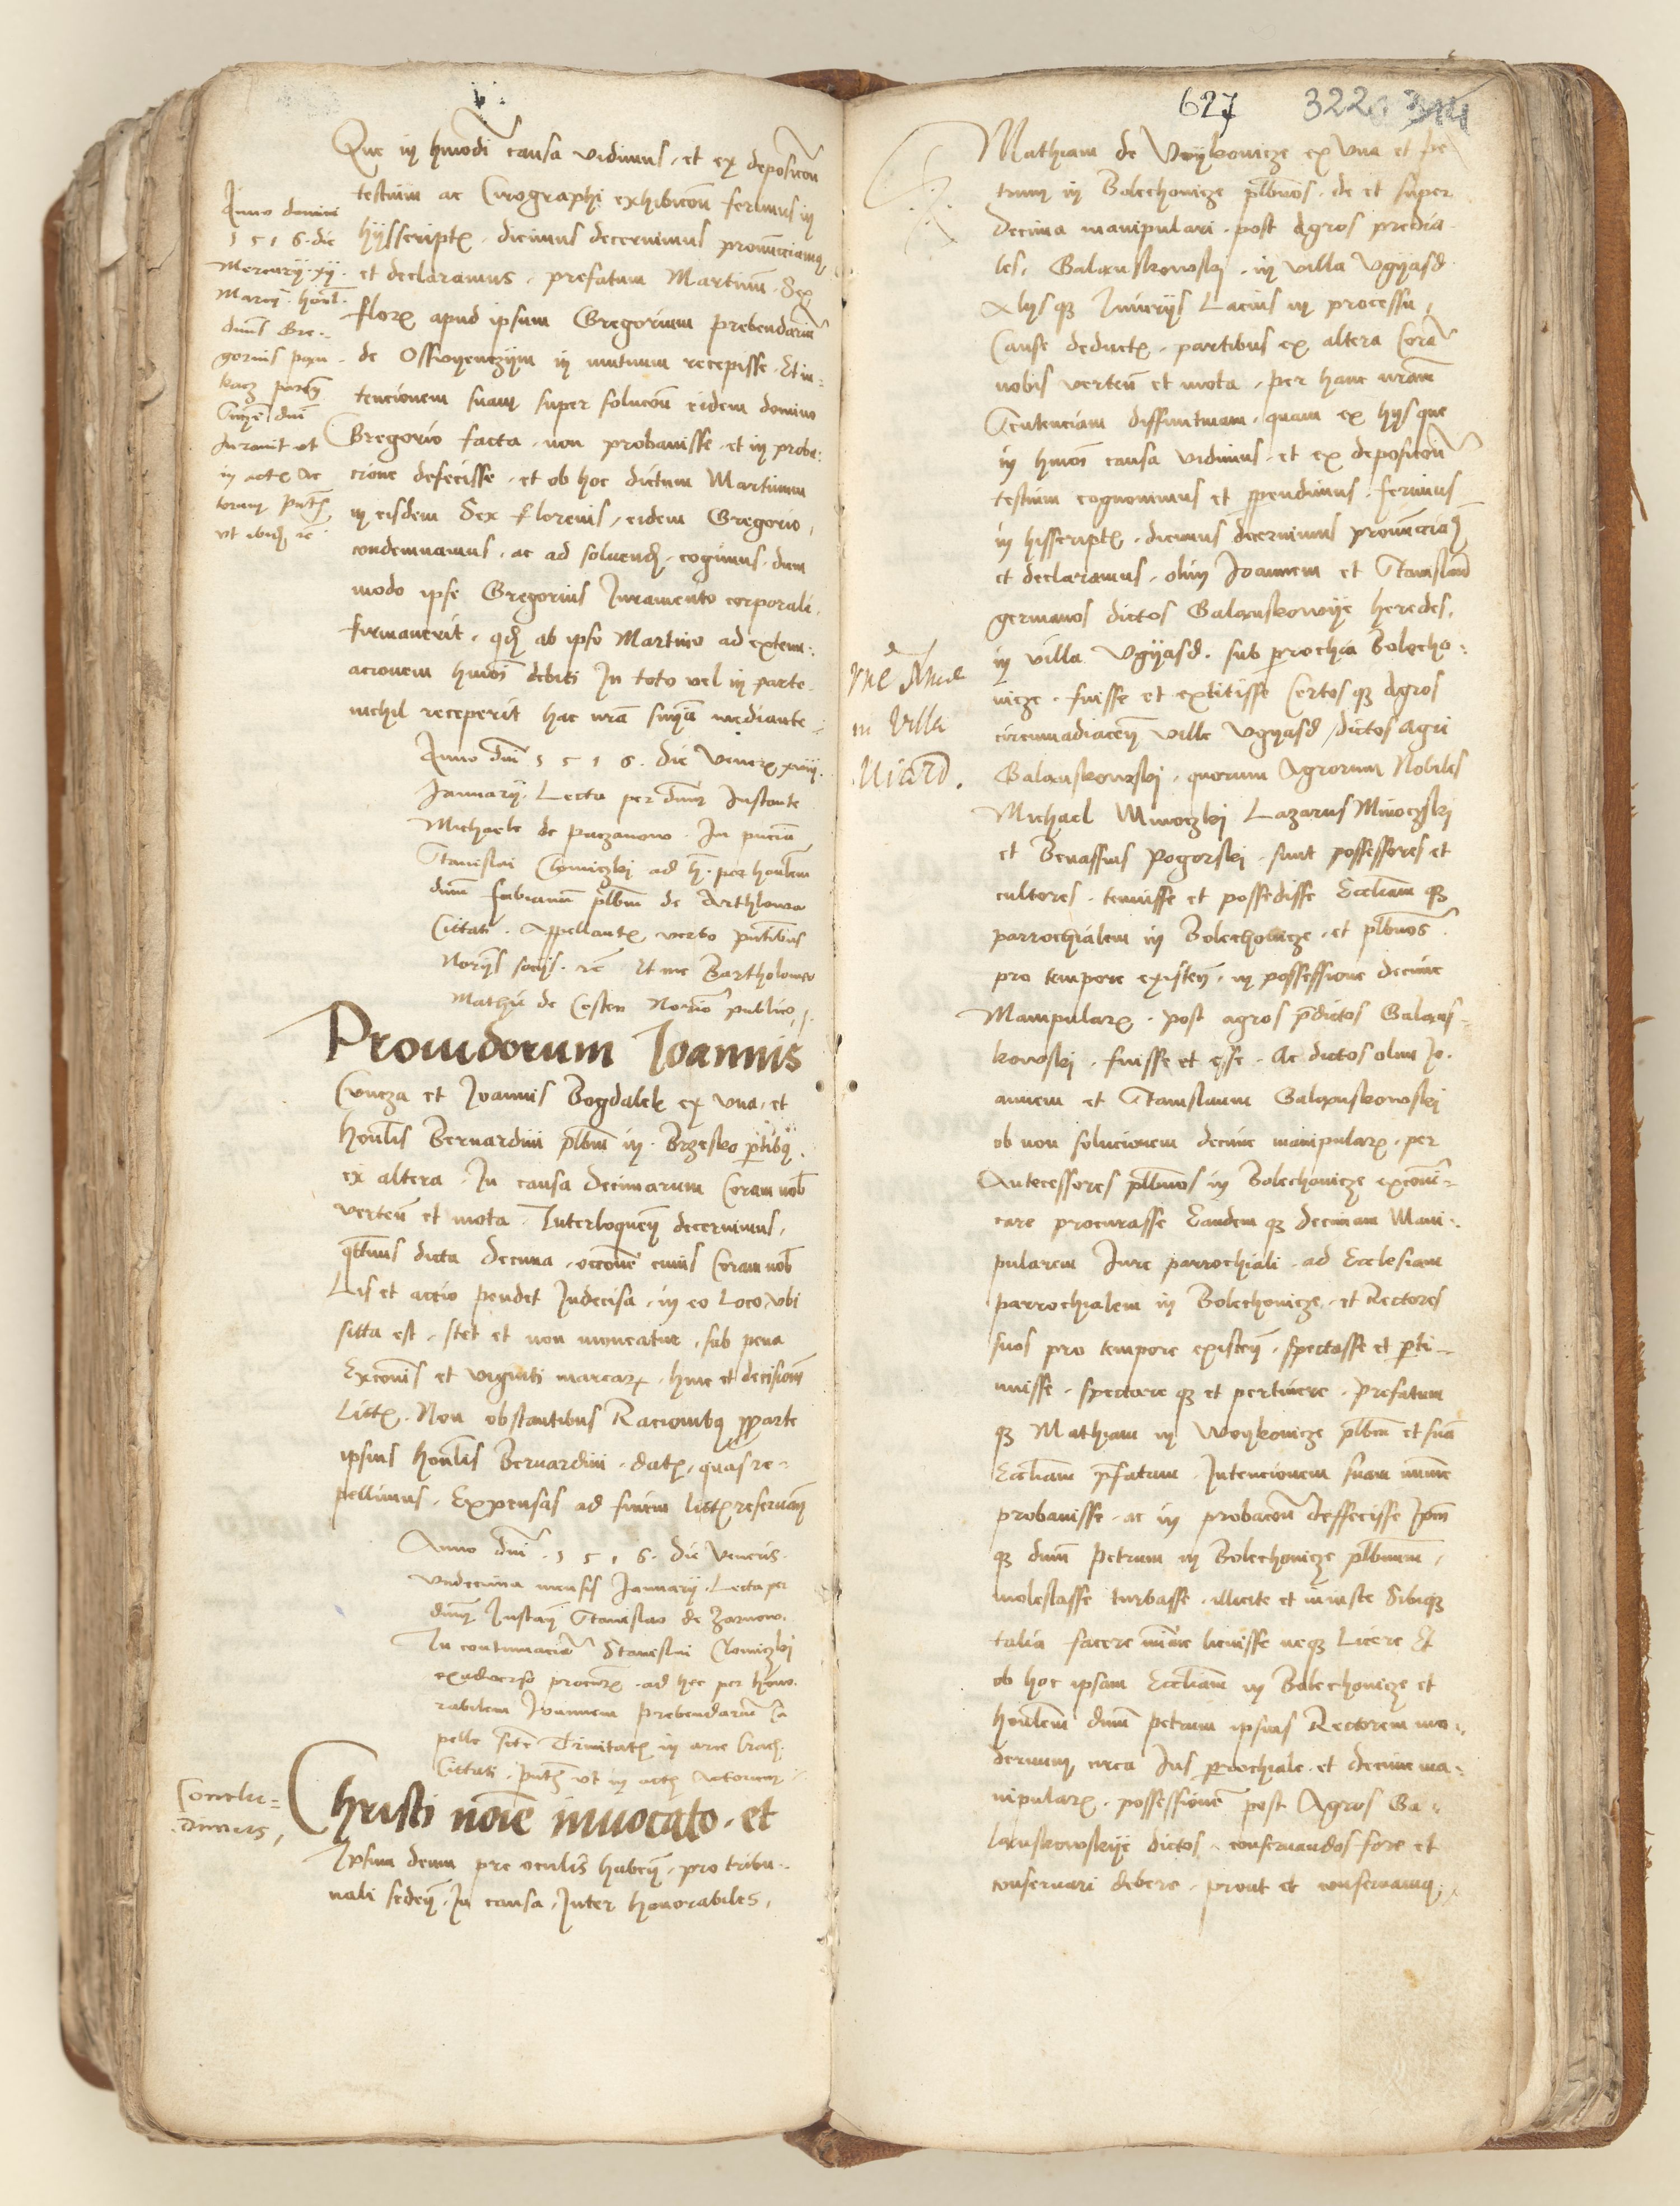 Que in hmodi causa vidimus, et ex deposicōn
testium ac Cirographi exhibicōn ferimus in
hijsscriptꝭ, dicimus decernimus pronūnciamꝯ
et declaramus, prefatum Martinū Sex
florꝭ apud ipsum Gregorium prebendariū
de Osswyenczym in mutuum recepisse. Et in=
tencionem suam super solucōn eidem domino
Gregorio facta, non probauisse, et in proba:
cione defecisse, et ob hoc dictum Martinum
in eisdem Sex florenis, eidem Gregorio,
condemnamus, ac ad soluendꝭ cogimus, dum
modo ipse Gregorius Iuramento corporali,
firmauerit, qdꝭ ab ipso Martino ad exten:
acionem hmōi debiti In toto vel in parte
nichil receperit hac nrā sniā mediante
Anno domini
1516 die
Mercurij xij
Marcij honl.
dnūs Gre-
gorius
iurauit ut
in actꝭ Ac
torum pntꝭ
vt ibidꝭ rc̄
Anno dnī 1516. die Venerꝭ xviij
Januarij. Lecta per dnūm Instante
Michaele de Puczanow. In pnciā
Stanislai Clomiczkj ad h. per honlem
dnūm fabianū plbnū de Arthlowa
Cittati. Appellantꝭ verbo pntibus
Norijs socijs. rc̄ Et me Bartholomeo
Mathie de Costen Norio publico
Prouidorum Ioannis
Cuncza et Ioannis Bogdalek ex vna, et
honlis Bernardini plbni in Brzesko ptibꝯ
ex altera, In causa decimarum Coram nob̄
verteñ et mota. Interloqueñ decernimus,
qtenus dicta decima, occone cuius Coram nob̄
Lis et accio pendet Indecisa, in eo Loco, vbi
sitta est, stet et non moueatur, sub pena
Excomīs et viginti marcarꝭ, hinc et decisionem
Littꝭ. Non obstantibus Racionibꝯ pparte
ipsius honlis Bernardini, datꝭ, quas re=
pellimus, Expensas ad finem littꝭ reseruanꝭ
Anno dnī 1516. die Veneris
vndecima mensis Januarij. Lecta per
dnūm Instanꝭ Stanislao de Zarnow.
In contumaciā Stanislai Clomiczkj
exaduerso procurꝭ ad hec per hono-
rabilem Joannem prebendariū Ca
pelle scte Trinitatꝭ in arce Cracꝭ
Cittati. pntꝭ vt in actꝭ Actorum
Conclu=
dimus,
Christi noīe inuocato, et
Ipsum deum pre oculis habeñ, pro tribu=
nali sedeñ, In causa, Inter honorabiles,
627 322
Mathiam de Woykowicze ex vna et Pe
trum in Bolechowicze plbnos. de et super
Decima manipulari, post Agros predia
les, Galanskowskj, in villa Vgyasd
Alijsqꝫ Iniurijs Lacius in processu,
Cause deductꝭ, partibus ex altera Corā
nobis verteñ et mota, per hanc nrām
Sentenciam diffinitiuam, quam ex hys que
in hmōi causa vidimus, et ex deposicōn
testium cognouimus et ppendimus, ferimus
in hisscriptꝭ, dicimus decernimus pronūnciamꝯ
et declaramus, olim Ioannem et Stanislaū
germanos dictos Galanskowije heredes,
in villa Vgyasd. sub parochia Bolecho:
wicze, fuisse et extitisse Certosqꝫ Agros
circumadiaceñ ville Vgyasd, dictos Agri
Galanskowskj, quorum Agrorum Nobiles
Michael Minoczkj Lazarus Minoczskj
et Benassius Pogorskj, sunt possessores et
cultores, tenuisse et possedisse Eccliamqꝫ
parrochialem in Bolechowicze, et plbnos
pro tempore existeñ, in possessione decime
Manipularꝭ, post agros pdictos Galans-
kowskj, fuisse et esse. Ac dictos olim Jo-
annem et Stanislaum Galanskowskj
ob non solucionem decime manipularꝭ, per
Antecessores plbnos in Bolechowicze exconi=
care procurasse Eandemqꝫ decimam Mani:
pularem Iure parrochiali, ad Ecclesiam
parrochialem in Bolechowicze, et Rectores
suos pro tempore existeñ, spectasse et pti=
nuisse, spectareqꝫ et pertinere, Prefatum
qꝫ Mathiam in Woykowicze plbnū et suā
Eccliam pfatam, Intencionem suam minime
probauisse, ac in probacōn deffecisse Ipm
qꝫ dnūm Petrum in Bolechowicze plbnum,
molestasse turbasse, illicite et iniuste Sibiqꝫ
talia facere minime licuisse neqꝫ Licere Et
ob hoc ipsam Eccliam in Bolechowicze et
honlem dnūm Petrum ipsius Rectorem mo=
dernum, circa Ius parochiale, et decime ma=
nipularꝭ, possessionē post Agros Ga=
lanskowskije dictos, conseruandos fore et
conseruari debere, prout et conseruamꝯ
in Villa
Uiazd.